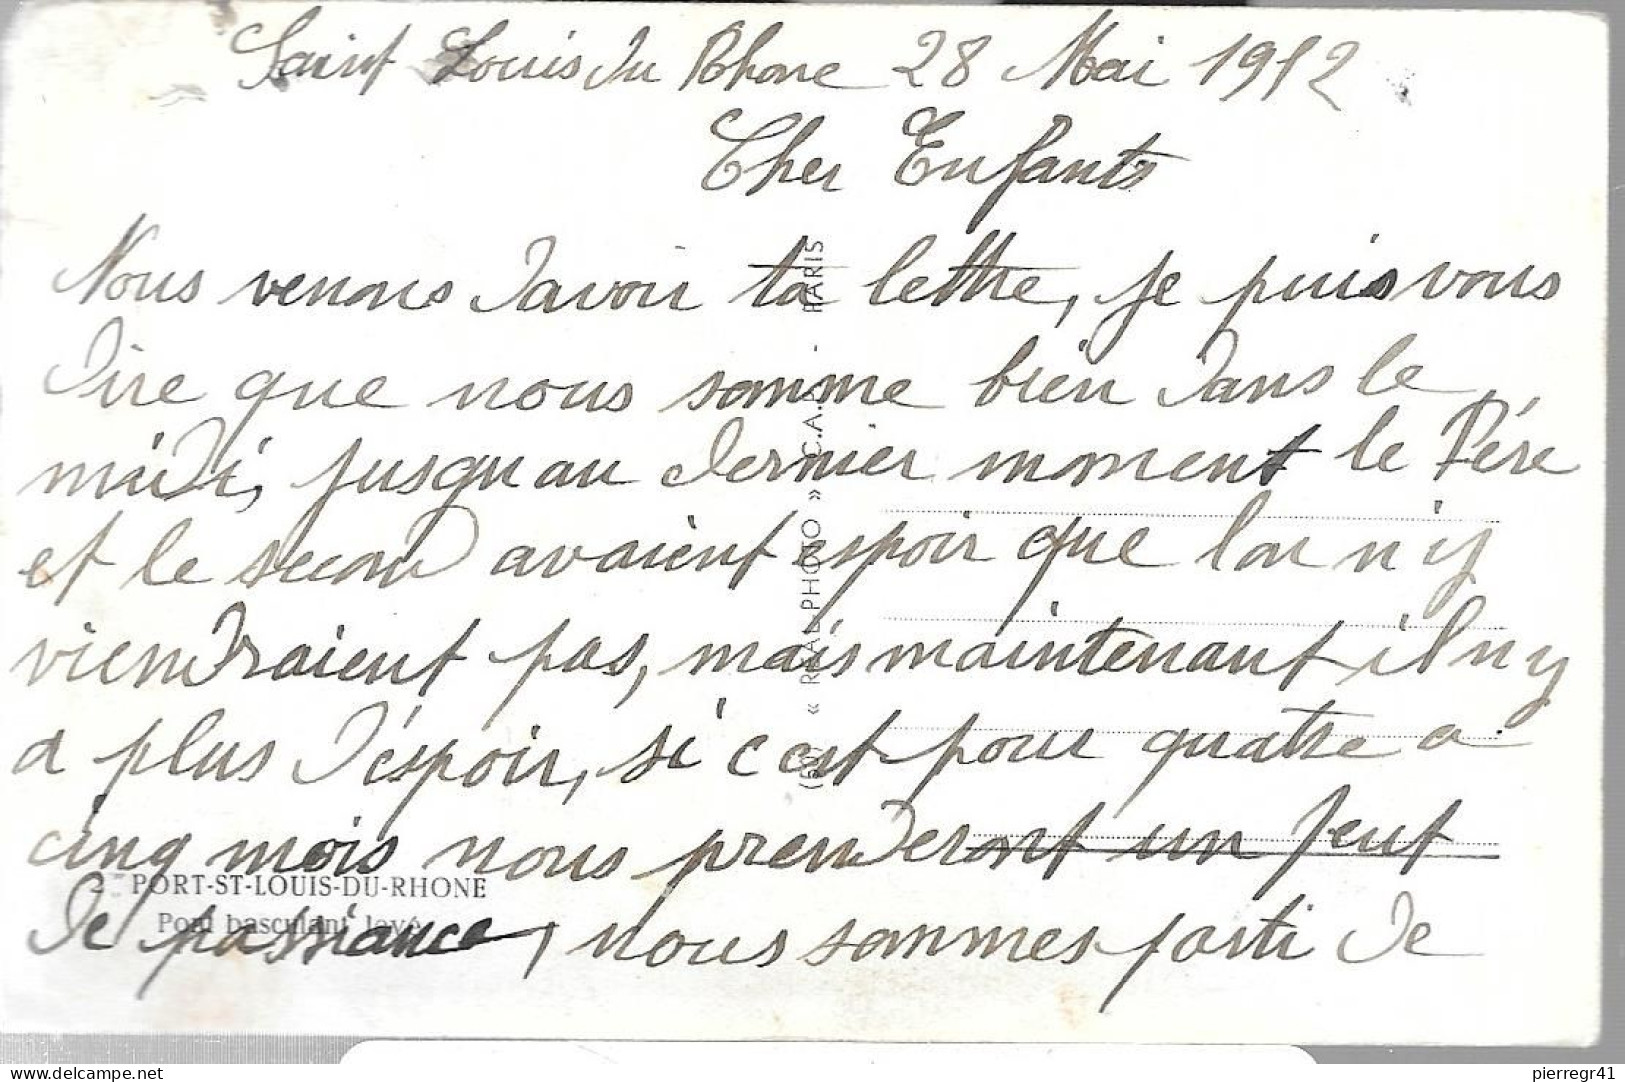 Saint Louis du Rhone 28 Mai 1912
Cher Enfants
Nous venons davoir ta lettre, je puis vous
dire que nous somme bien dans le
midi, jusquau dernier moment le Pére
et le second avaient espoir que lon n'iy
viendraient pas, mais maintenant il n y
a plus d'éspoir, si c'est pour quatre a
cinq mois nous prenderont un peut
de passiance, nous sommes parti de
PORT-ST-LOUIS-DU-RHONE
Pont basculant levé
« REAL-PHOTO » C.A.P. - PARIS
pierregr41
delcampe.net